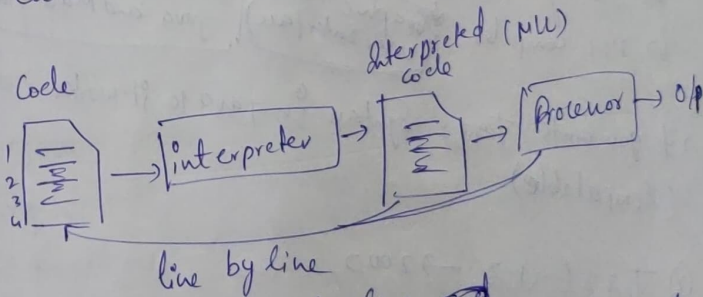 Code
1
2
3
4
interpreter
Interpreted (MLL)
code
Processor
O/p
line by line